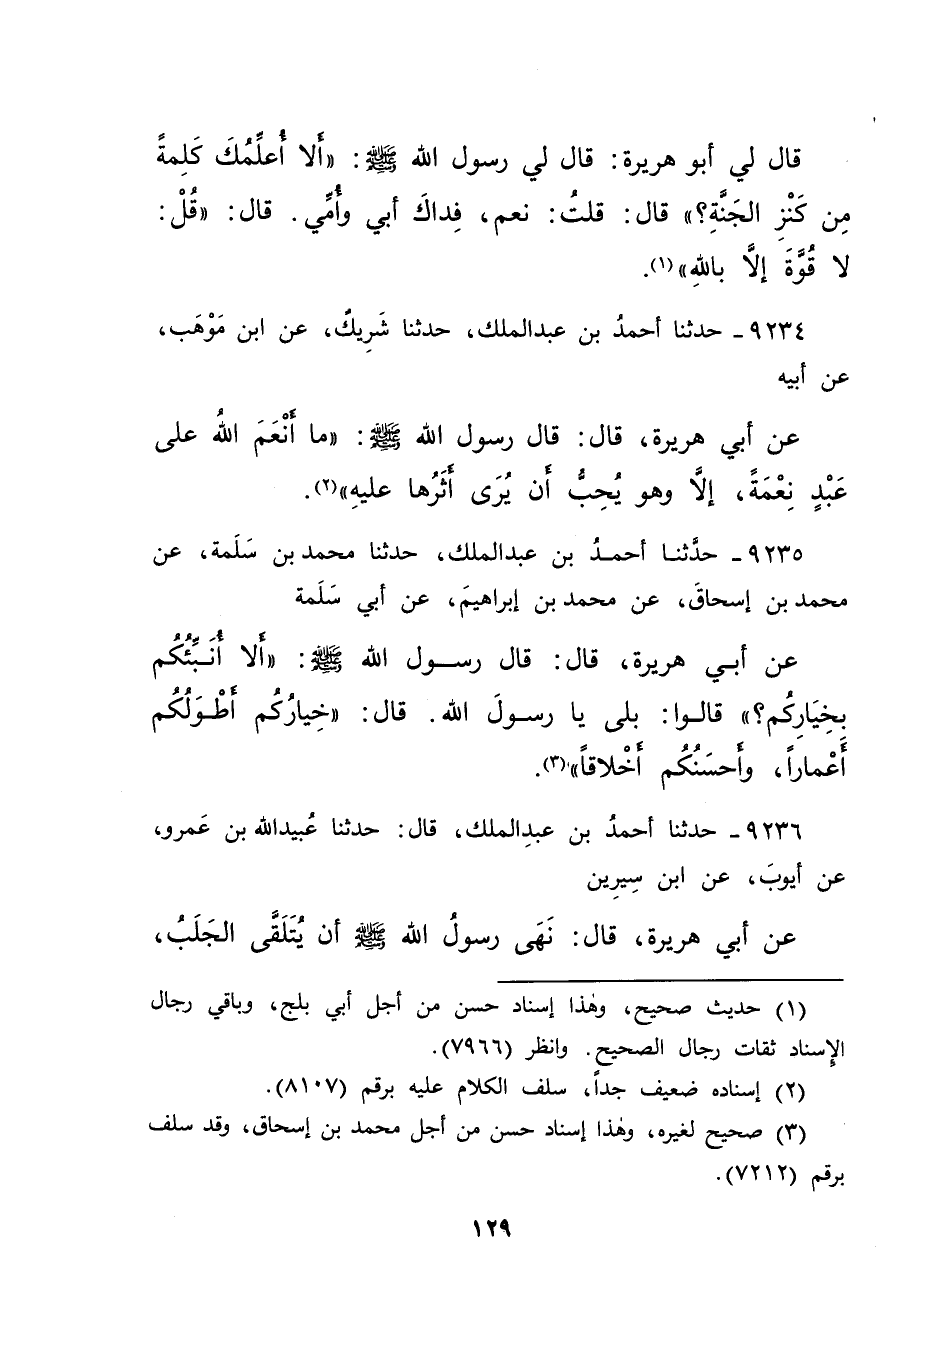 قال لي أبو هريرة: قال لي رسول الله ﷺ: «أَلا أُعلِّمُكَ كَلِمةً
مِن كَنْزِ الجَنَّةِ؟» قال: قلتُ: نعم، فِداكَ أبي وأُمِّي. قال: «قُلْ:
لا قُوَّةَ إلَّا باللهِ»(١).
٩٢٣٤ـ حدثنا أحمدُ بن عبدالملك، حدثنا شَرِيكٌ، عن ابن مَوْهَب،
عن أبيه
عن أبي هريرة، قال: قال رسول الله ﷺ: «ما أَنْعَمَ اللهُ على
عَبْدٍ نِعْمَةً، إلَّا وهو يُحِبُّ أَن يُرَى أَثَرُها عليهِ»(٢).
٩٢٣٥ـ حدَّثنا أحمدُ بن عبدالملك، حدثنا محمد بن سَلَمة، عن
محمد بن إسحاقَ، عن محمد بن إبراهيمَ، عن أبي سَلَمة
عن أبي هريرة، قال: قال رسول الله ﷺ: «أَلا أُنَبِّئُكُم
بِخِيَارِكُم؟» قالوا: بلى يا رسولَ الله. قال: «خِيارُكُم أَطْوَلُكُم
أَعْماراً، وأَحسَنُكُم أَخْلاقاً»(٣).
٩٢٣٦ـ حدثنا أحمدُ بن عبدِالملك، قال: حدثنا عُبيدالله بن عَمرو،
عن أيوبَ، عن ابن سِيرِين
عن أبي هريرة، قال: نَهَى رسولُ الله ﷺ أن يُتَلَقَّى الجَلَبُ،
(١) حديث صحيح، وهٰذا إسناد حسن من أجل أبي بلج، وباقي رجال
الإِسناد ثقات رجال الصحيح. وانظر (٧٩٦٦).
(٢) إسناده ضعيف جداً، سلف الكلام عليه برقم (٨١٠٧).
(٣) صحيح لغيره، وهٰذا إسناد حسن من أجل محمد بن إسحاق، وقد سلف
برقم (٧٢١٢).
١٢٩